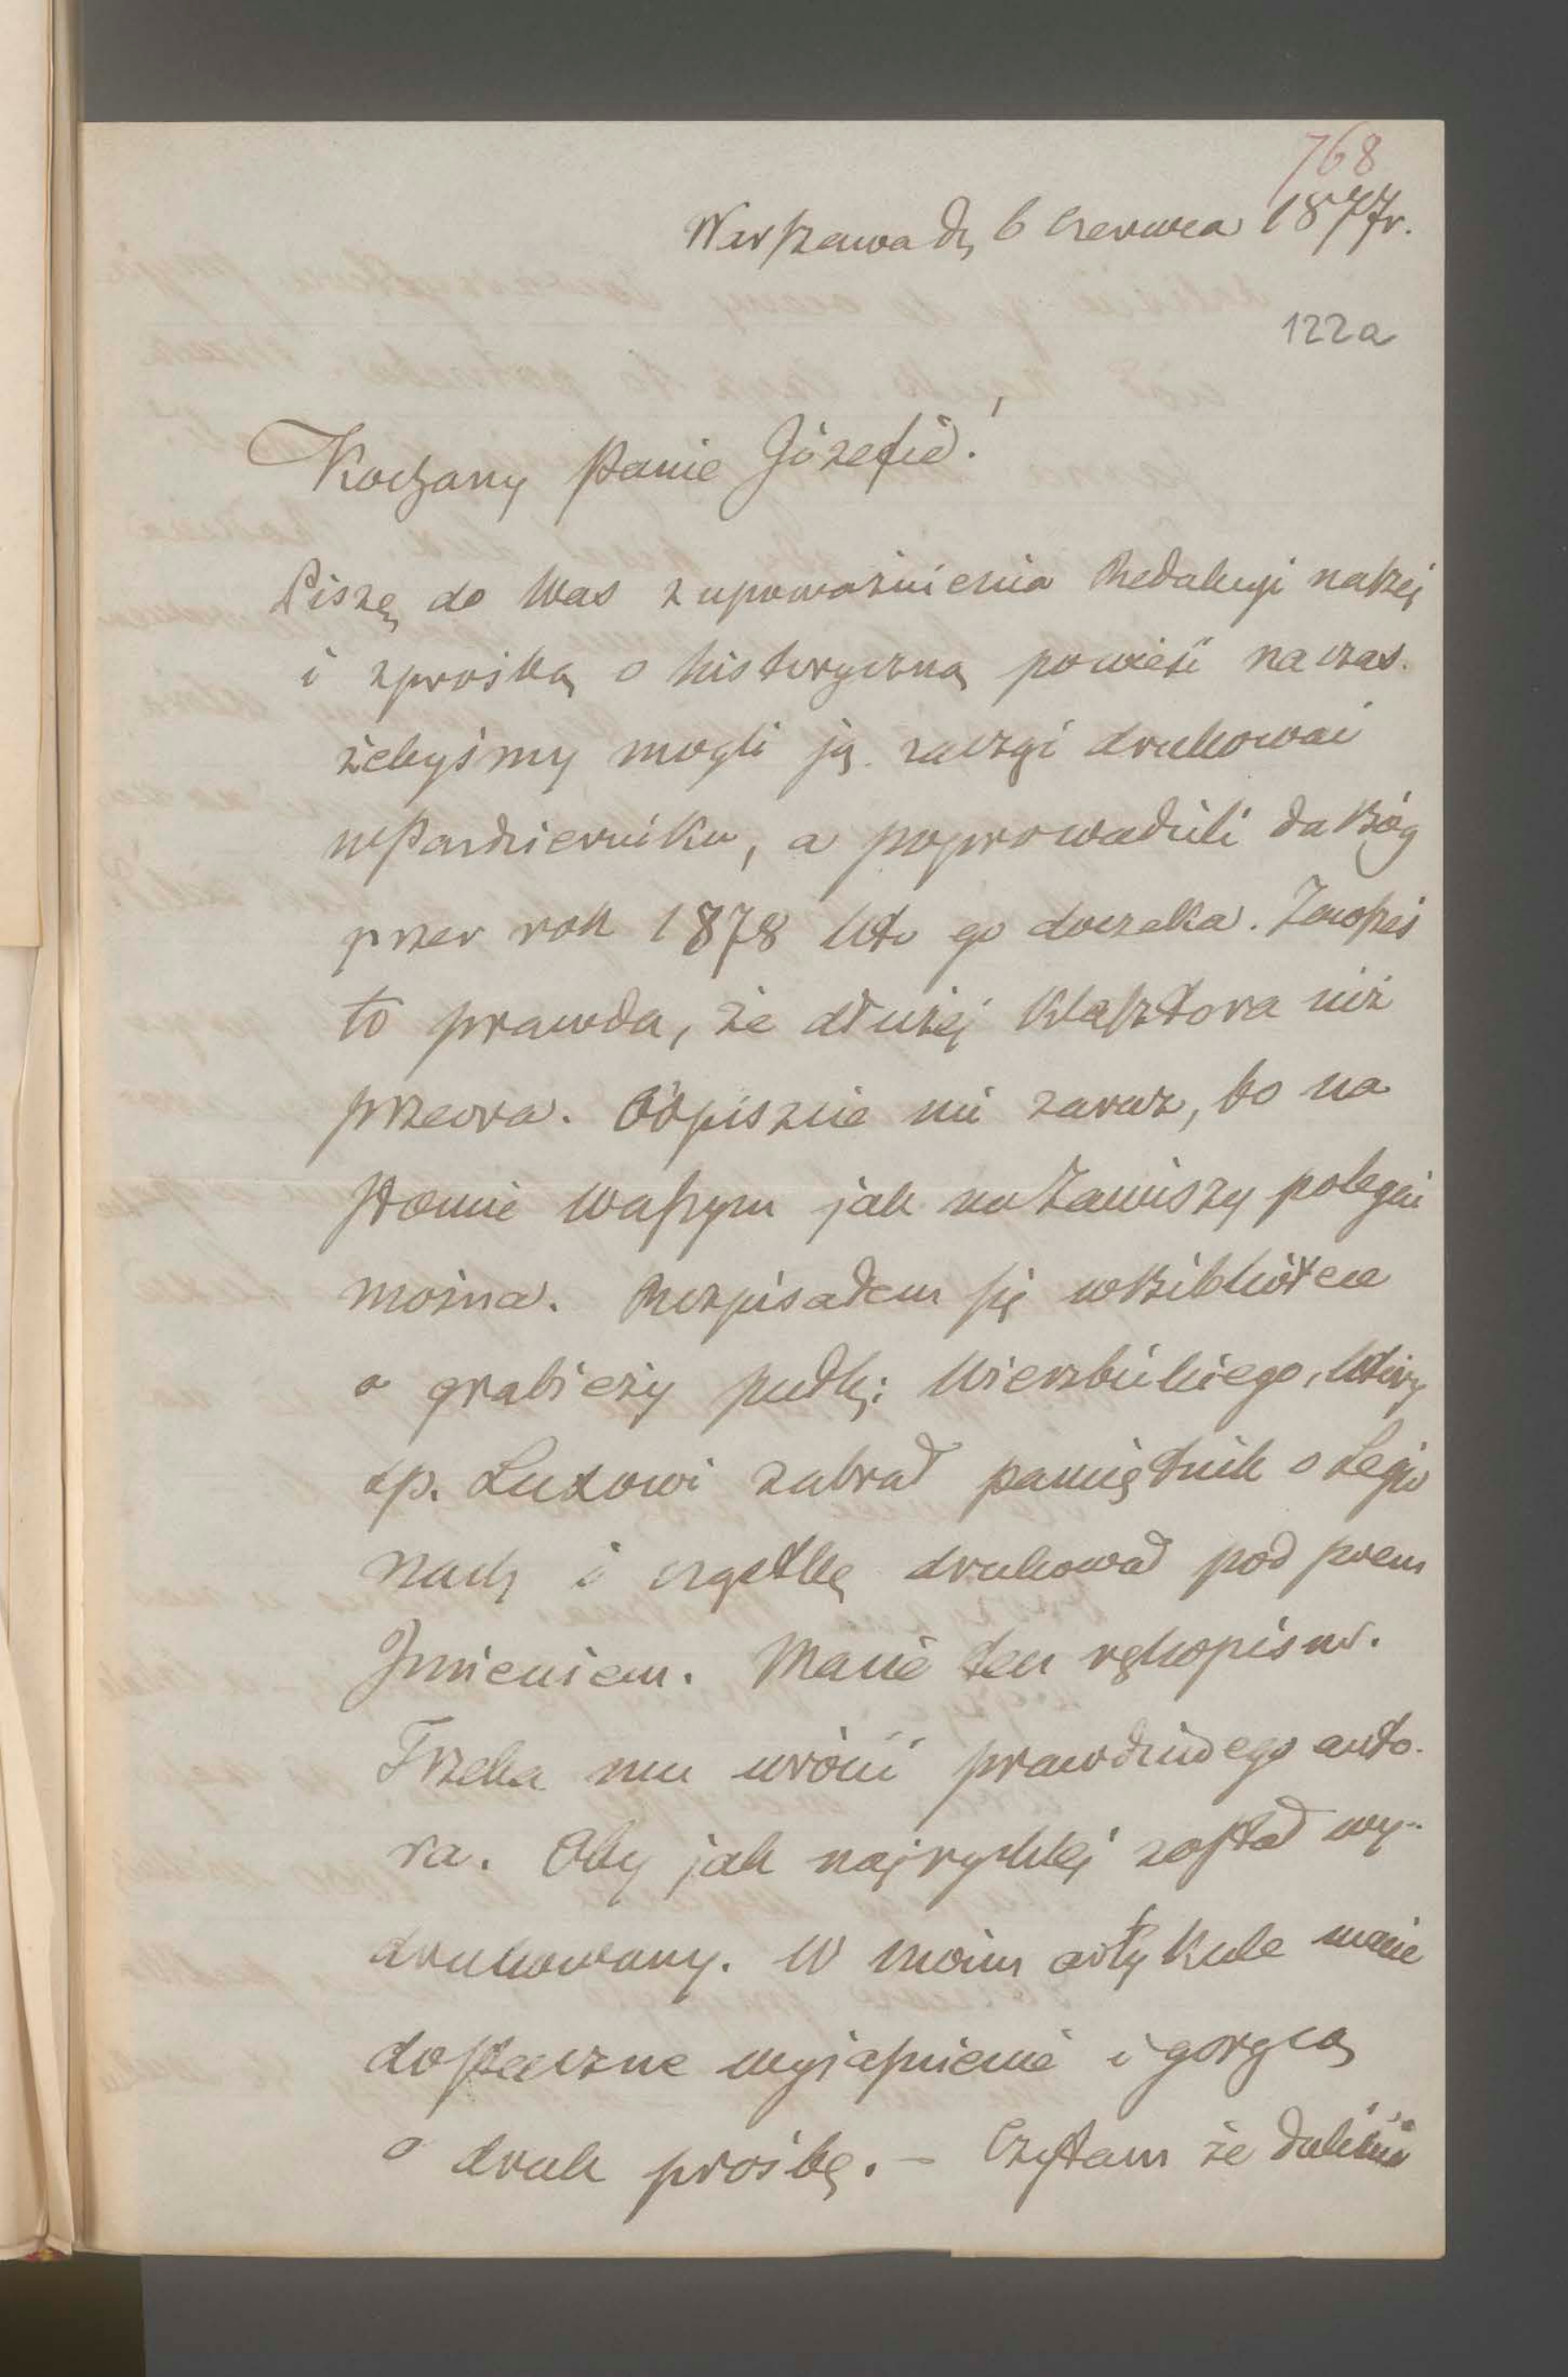 768
Warszawa d. 6 Czerwca 1877 r.
122a
Kochany Panie Józefie!
Piszę do Was z upoważnienia Redakcyi naszéj
i z prośbą o historyczną powieść na czas.
żebyśmy mogli ją zacząć drukować
w Październiku, a poprowadzili da Bóg
przez rok 1878 kto go doczeka.
to prawda, że dłużéj klasztora niż
przeora. Odpiszcie mi zaraz, bo na
słowie Waszym jak na Zawiszy polegać
można. Rozpisałem się w Bibliotece
o grabieży pułk: Wierzbickiego, który
śp. Luxowi zabrał pamiętnik o Legio
nach i cząstkę drukował pod swem
Imieniem. Macie ten rękopism.
Trzeba mu wrócić prawdziwego auto-
ra. Oby jak najrychléj został wy-
drukowany. W moim artykule macie
dostateczne wyjaśnienie i gorącą
o druk prośbę. – Czytam że daliście